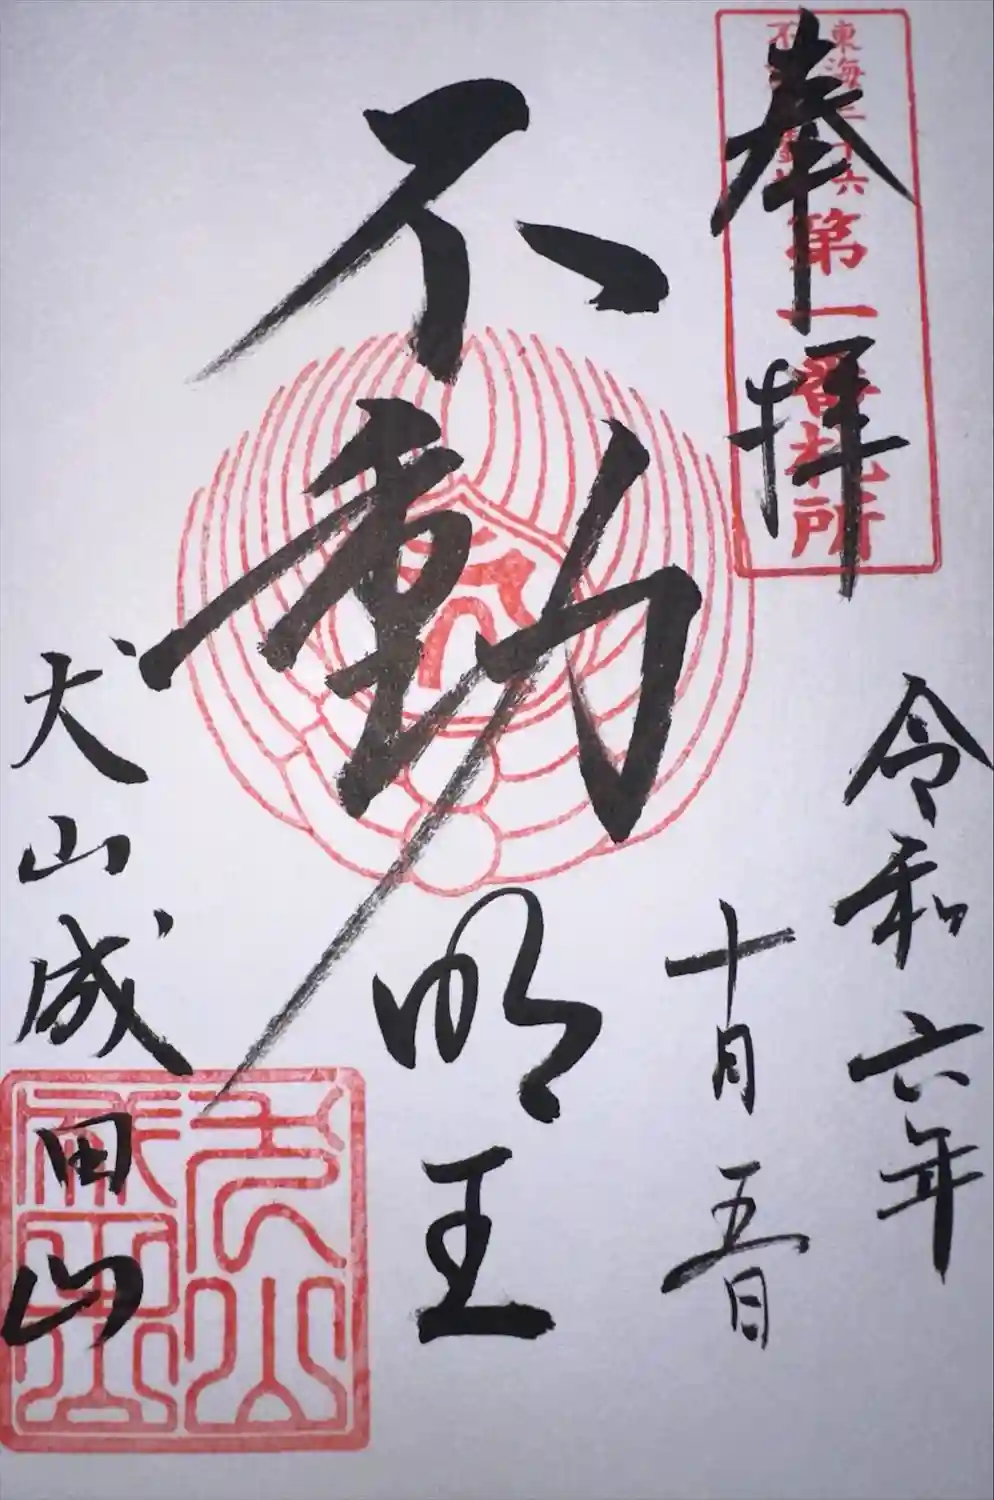 奉拝
東海三十六
不
第一番札所
令和六年
十月五日
不動明王
犬山成田山